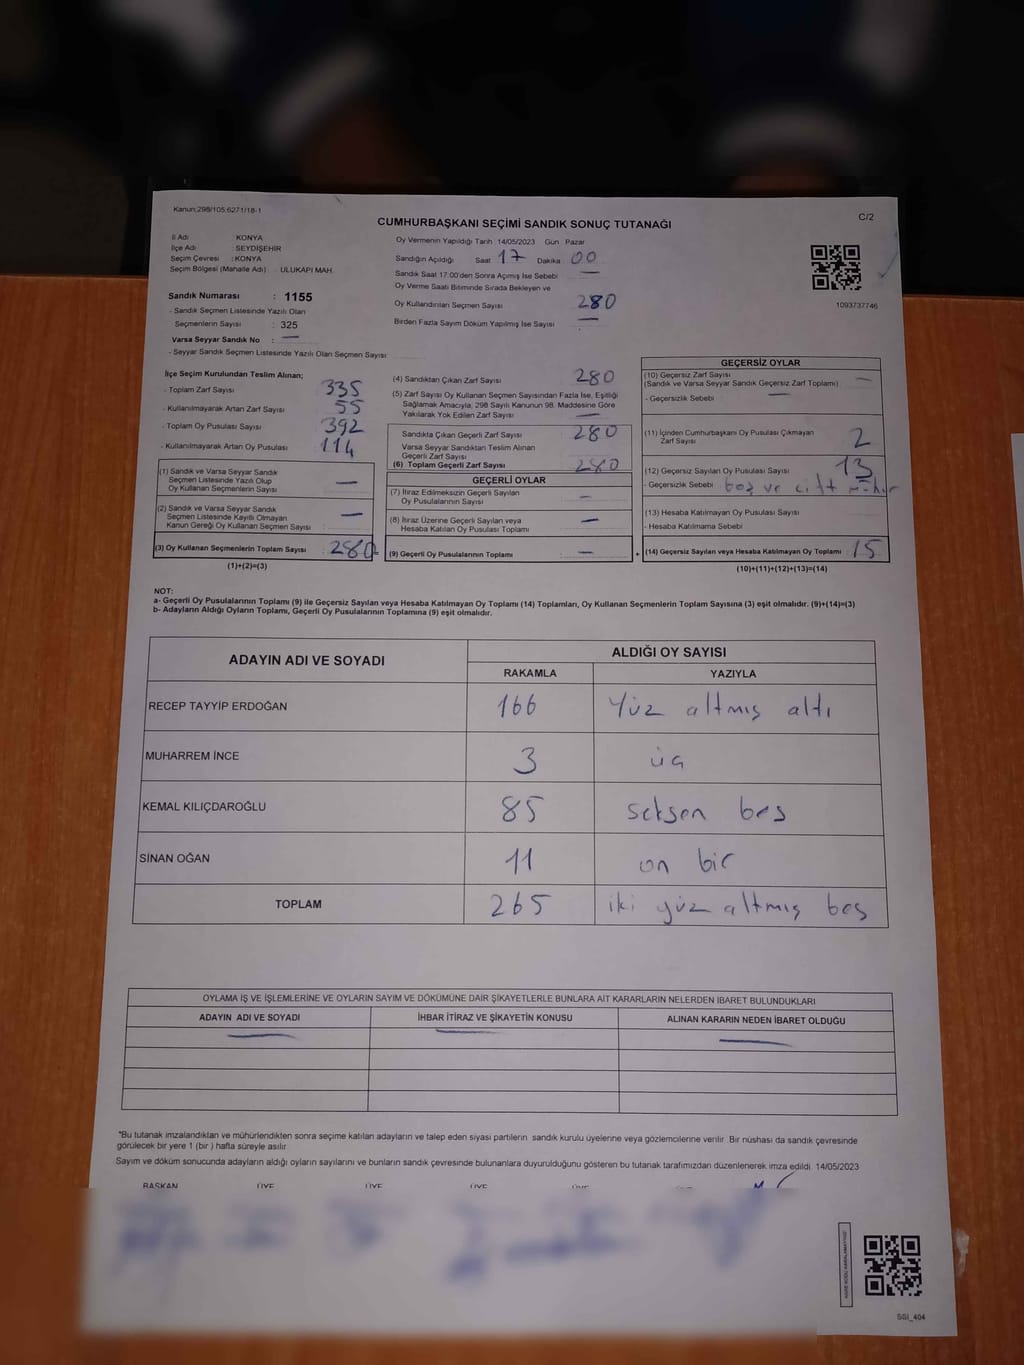 Kanun;298/105,6271/18-1
C/2
CUMHURBAŞKANI SEÇİMİ SANDIK SONUÇ TUTANAĞI
İl Adı : KONYA
İlçe Adı : SEYDİŞEHİR
Seçim Çevresi : KONYA
Seçim Bölgesi (Mahalle Adı) : ULUKAPI MAH.
Sandık Numarası : 1155
- Sandık Seçmen Listesinde Yazılı Olan
Seçmenlerin Sayısı : 325
Varsa Seyyar Sandık No : —
- Seyyar Sandık Seçmen Listesinde Yazılı Olan Seçmen Sayısı
Oy Vermenin Yapıldığı Tarih 14/05/2023 Gün Pazar
Sandığın Açıldığı Saat 17 Dakika 00
Sandık Saat 17:00'den Sonra Açımış İse Sebebi —
Oy Verme Saati Bitiminde Sırada Bekleyen ve
Oy Kullandırılan Seçmen Sayısı 280
Birden Fazla Sayım Döküm Yapılmış İse Sayısı —
1093737746
İlçe Seçim Kurulundan Teslim Alınan;
- Toplam Zarf Sayısı 335
- Kullanılmayarak Artan Zarf Sayısı 55
- Toplam Oy Pusulası Sayısı 392
- Kullanılmayarak Artan Oy Pusulası 114
(1) Sandık ve Varsa Seyyar Sandık
Seçmen Listesinde Yazılı Olup
Oy Kullanan Seçmenlerin Sayısı —
(2) Sandık ve Varsa Seyyar Sandık
Seçmen Listesinde Kayıtlı Olmayan
Kanun Gereği Oy Kullanan Seçmen Sayısı : —
(3) Oy Kullanan Seçmenlerin Toplam Sayısı : 280
(1)+(2)=(3)
(4) Sandıktan Çıkan Zarf Sayısı 280
(5) Zarf Sayısı Oy Kullanan Seçmen Sayısından Fazla İse, Eşitliği
Sağlamak Amacıyla, 298 Sayılı Kanunun 98. Maddesine Göre
Yakılarak Yok Edilen Zarf Sayısı —
Sandıkta Çıkan Geçerli Zarf Sayısı 280
Varsa Seyyar Sandıktan Teslim Alınan
Geçerli Zarf Sayısı
(6) Toplam Geçerli Zarf Sayısı 280
GEÇERLİ OYLAR
(7) İtiraz Edilmeksizin Geçerli Sayılan
Oy Pusulalarının Sayısı —
(8) İtiraz Üzerine Geçerli Sayılan veya
Hesaba Katılan Oy Pusulası Toplamı —
(9) Geçerli Oy Pusulalarının Toplamı : —
GEÇERSİZ OYLAR
(10) Geçersiz Zarf Sayısı
(Sandık ve Varsa Seyyar Sandık Geçersiz Zarf Toplamı) —
- Geçersizlik Sebebi —
(11) İçinden Cumhurbaşkanı Oy Pusulası Çıkmayan
Zarf Sayısı 2
(12) Geçersiz Sayılan Oy Pusulası Sayısı 13
- Geçersizlik Sebebi boş ve çift mühür
(13) Hesaba Katılmayan Oy Pusulası Sayısı
- Hesaba Katılmama Sebebi
+ (14) Geçersiz Sayılan veya Hesaba Katılmayan Oy Toplamı 15
(10)+(11)+(12)+(13)=(14)
NOT:
a- Geçerli Oy Pusulalarının Toplamı (9) ile Geçersiz Sayılan veya Hesaba Katılmayan Oy Toplamı (14) Toplamları, Oy Kullanan Seçmenlerin Toplam Sayısına (3) eşit olmalıdır. (9)+(14)=(3)
b- Adayların Aldığı Oyların Toplamı, Geçerli Oy Pusulalarının Toplamına (9) eşit olmalıdır.
ADAYIN ADI VE SOYADI
ALDIĞI OY SAYISI
RAKAMLA YAZIYLA
RECEP TAYYİP ERDOĞAN 166 Yüz altmış altı
MUHARREM İNCE 3 üç
KEMAL KILIÇDAROĞLU 85 seksen beş
SİNAN OĞAN 11 on bir
TOPLAM 265 iki yüz altmış beş
OYLAMA İŞ VE İŞLEMLERİNE VE OYLARIN SAYIM VE DÖKÜMÜNE DAİR ŞİKAYETLERLE BUNLARA AİT KARARLARIN NELERDEN İBARET BULUNDUKLARI
ADAYIN ADI VE SOYADI İHBAR İTİRAZ VE ŞİKAYETİN KONUSU ALINAN KARARIN NEDEN İBARET OLDUĞU
— — —
*Bu tutanak imzalandıktan ve mühürlendikten sonra seçime katılan adayların ve talep eden siyasi partilerin sandık kurulu üyelerine veya gözlemcilerine verilir. Bir nüshası da sandık çevresinde
görülecek bir yere 1 (bir) hafta süreyle asılır.
Sayım ve döküm sonucunda adayların aldığı oyların sayılarını ve bunların sandık çevresinde bulunanlara duyurulduğunu gösteren bu tutanak tarafımızdan düzenlenerek imza edildi. 14/05/2023
BAŞKAN ÜYE ÜYE ÜYE ÜYE
SGİ_404